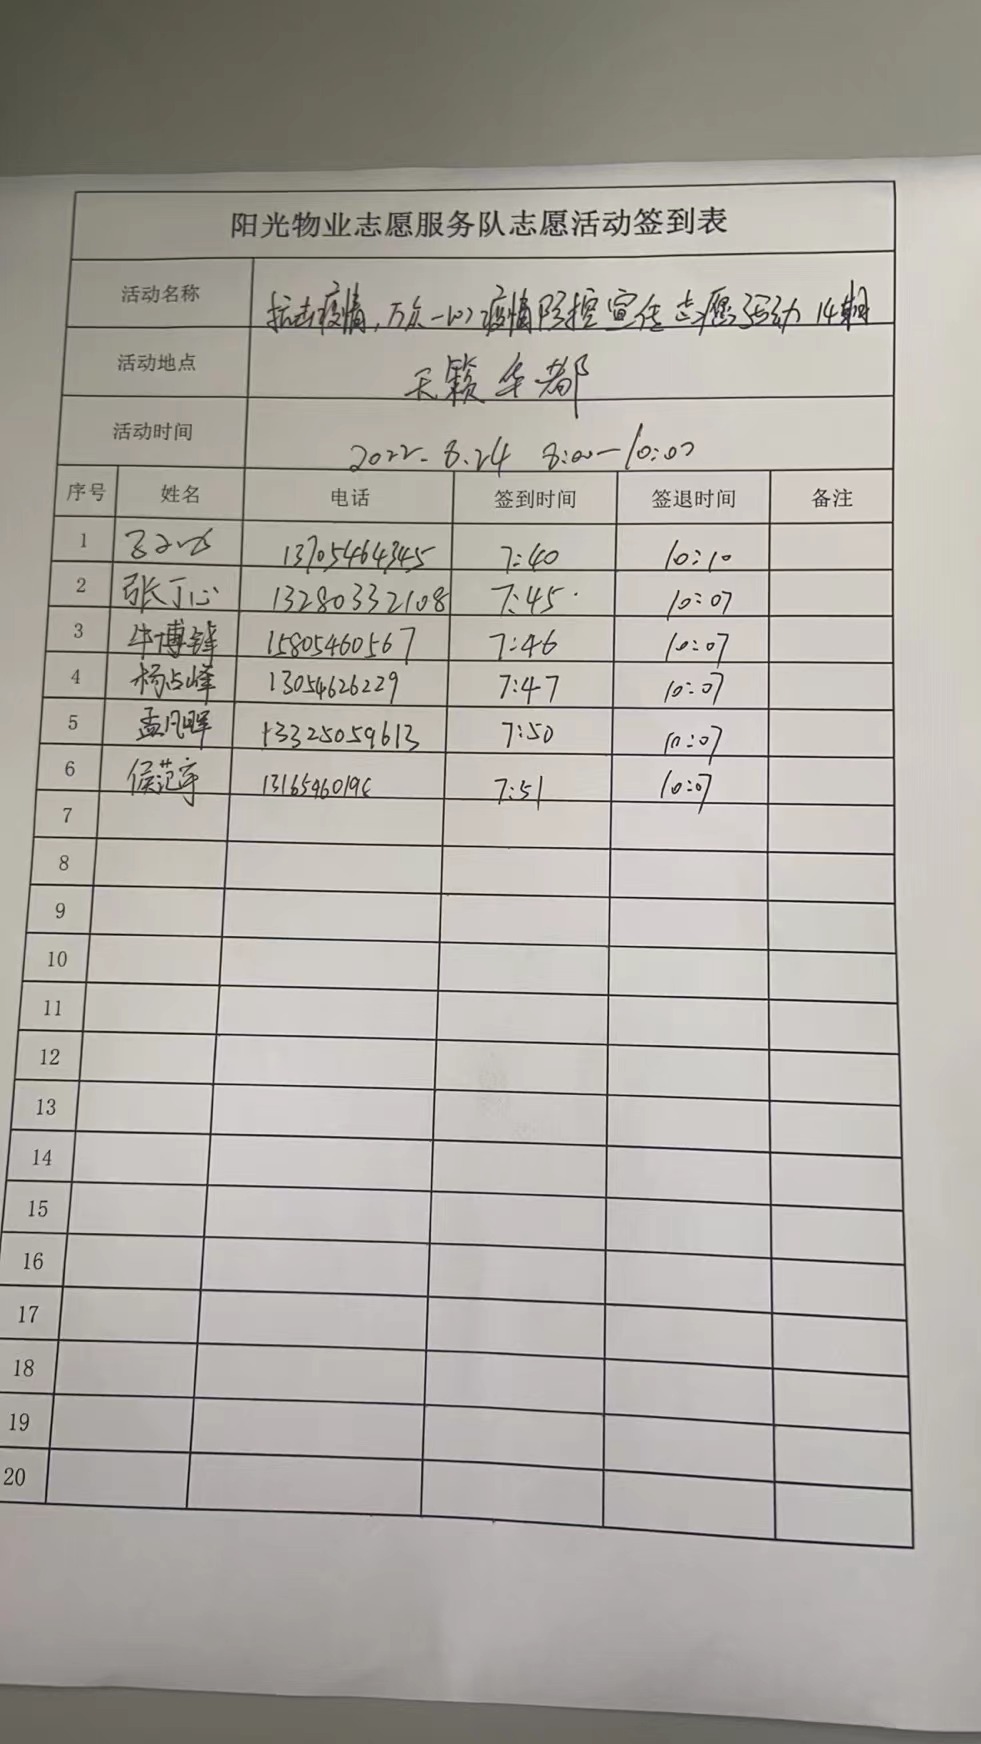 阳光物业志愿服务队志愿活动签到表
活动名称 抗击疫情，万众一心疫情防控宣传志愿活动 14期
活动地点 天籁华都
活动时间 2022.8.24 8:00—10:00
序号 姓名 电话 签到时间 签退时间 备注
1 13705464345 7:40 10:10
2 张丁心 13280332108 7:45 10:07
3 牛博锋 15805460567 7:46 10:07
4 杨占峰 13054626229 7:47 10:07
5 孟凡晖 13325059613 7:50 10:07
6 侯范宇 7:51 10:07
7
8
9
10
11
12
13
14
15
16
17
18
19
20